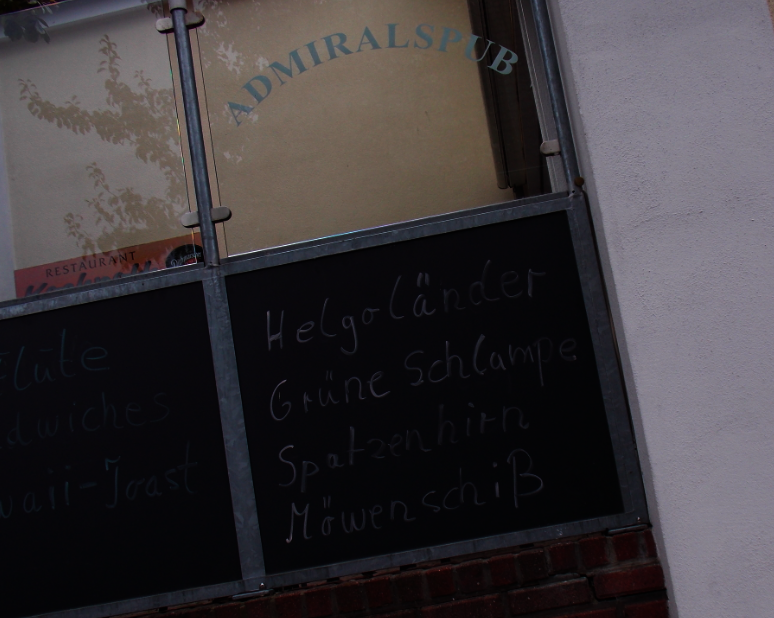 ADMIRALSPUB
RESTAURANT
Flute
waii-Toast
Helgoländer
Grüne Schlampe
Spatzenhirn
Möwenschiß